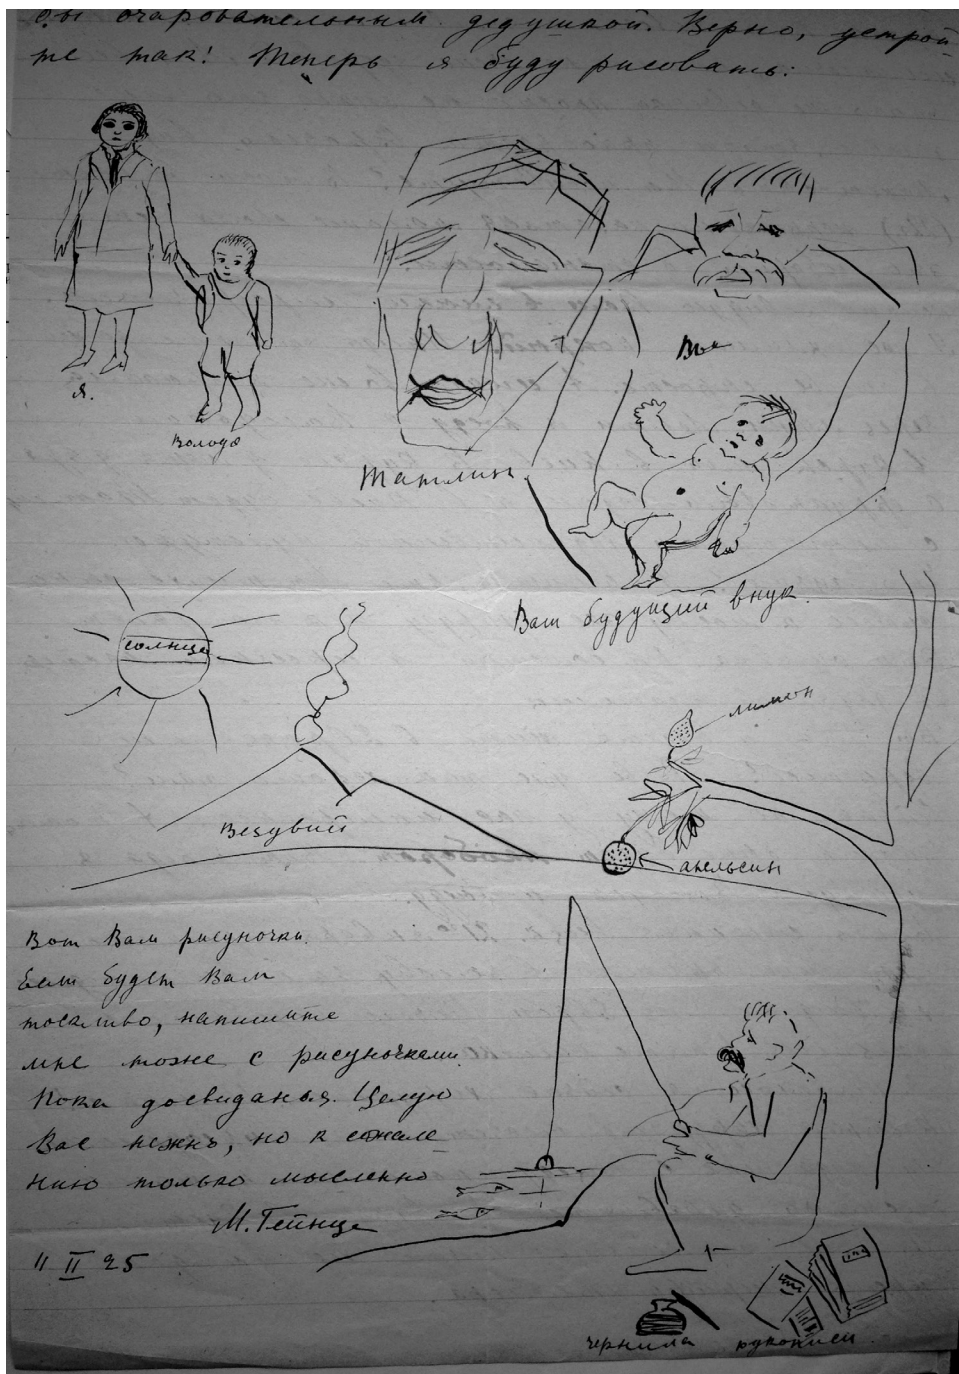 бы очаровательным дедушкой. Верно, устрой-
те так! Теперь я буду рисовать:
я.
Володя
Татлин
Вы
Ваш будущий внук.
солнце
Везувий
лимон
апельсин
Вот Вам рисуночки.
Если будет Вам
тоскливо, напишите
мне тоже с рисуночками.
Пока досвиданья. Целую
Вас нежно, но к сожале
нию только мысленно
М. Гейнце
11 II 25
чернила
рукописи